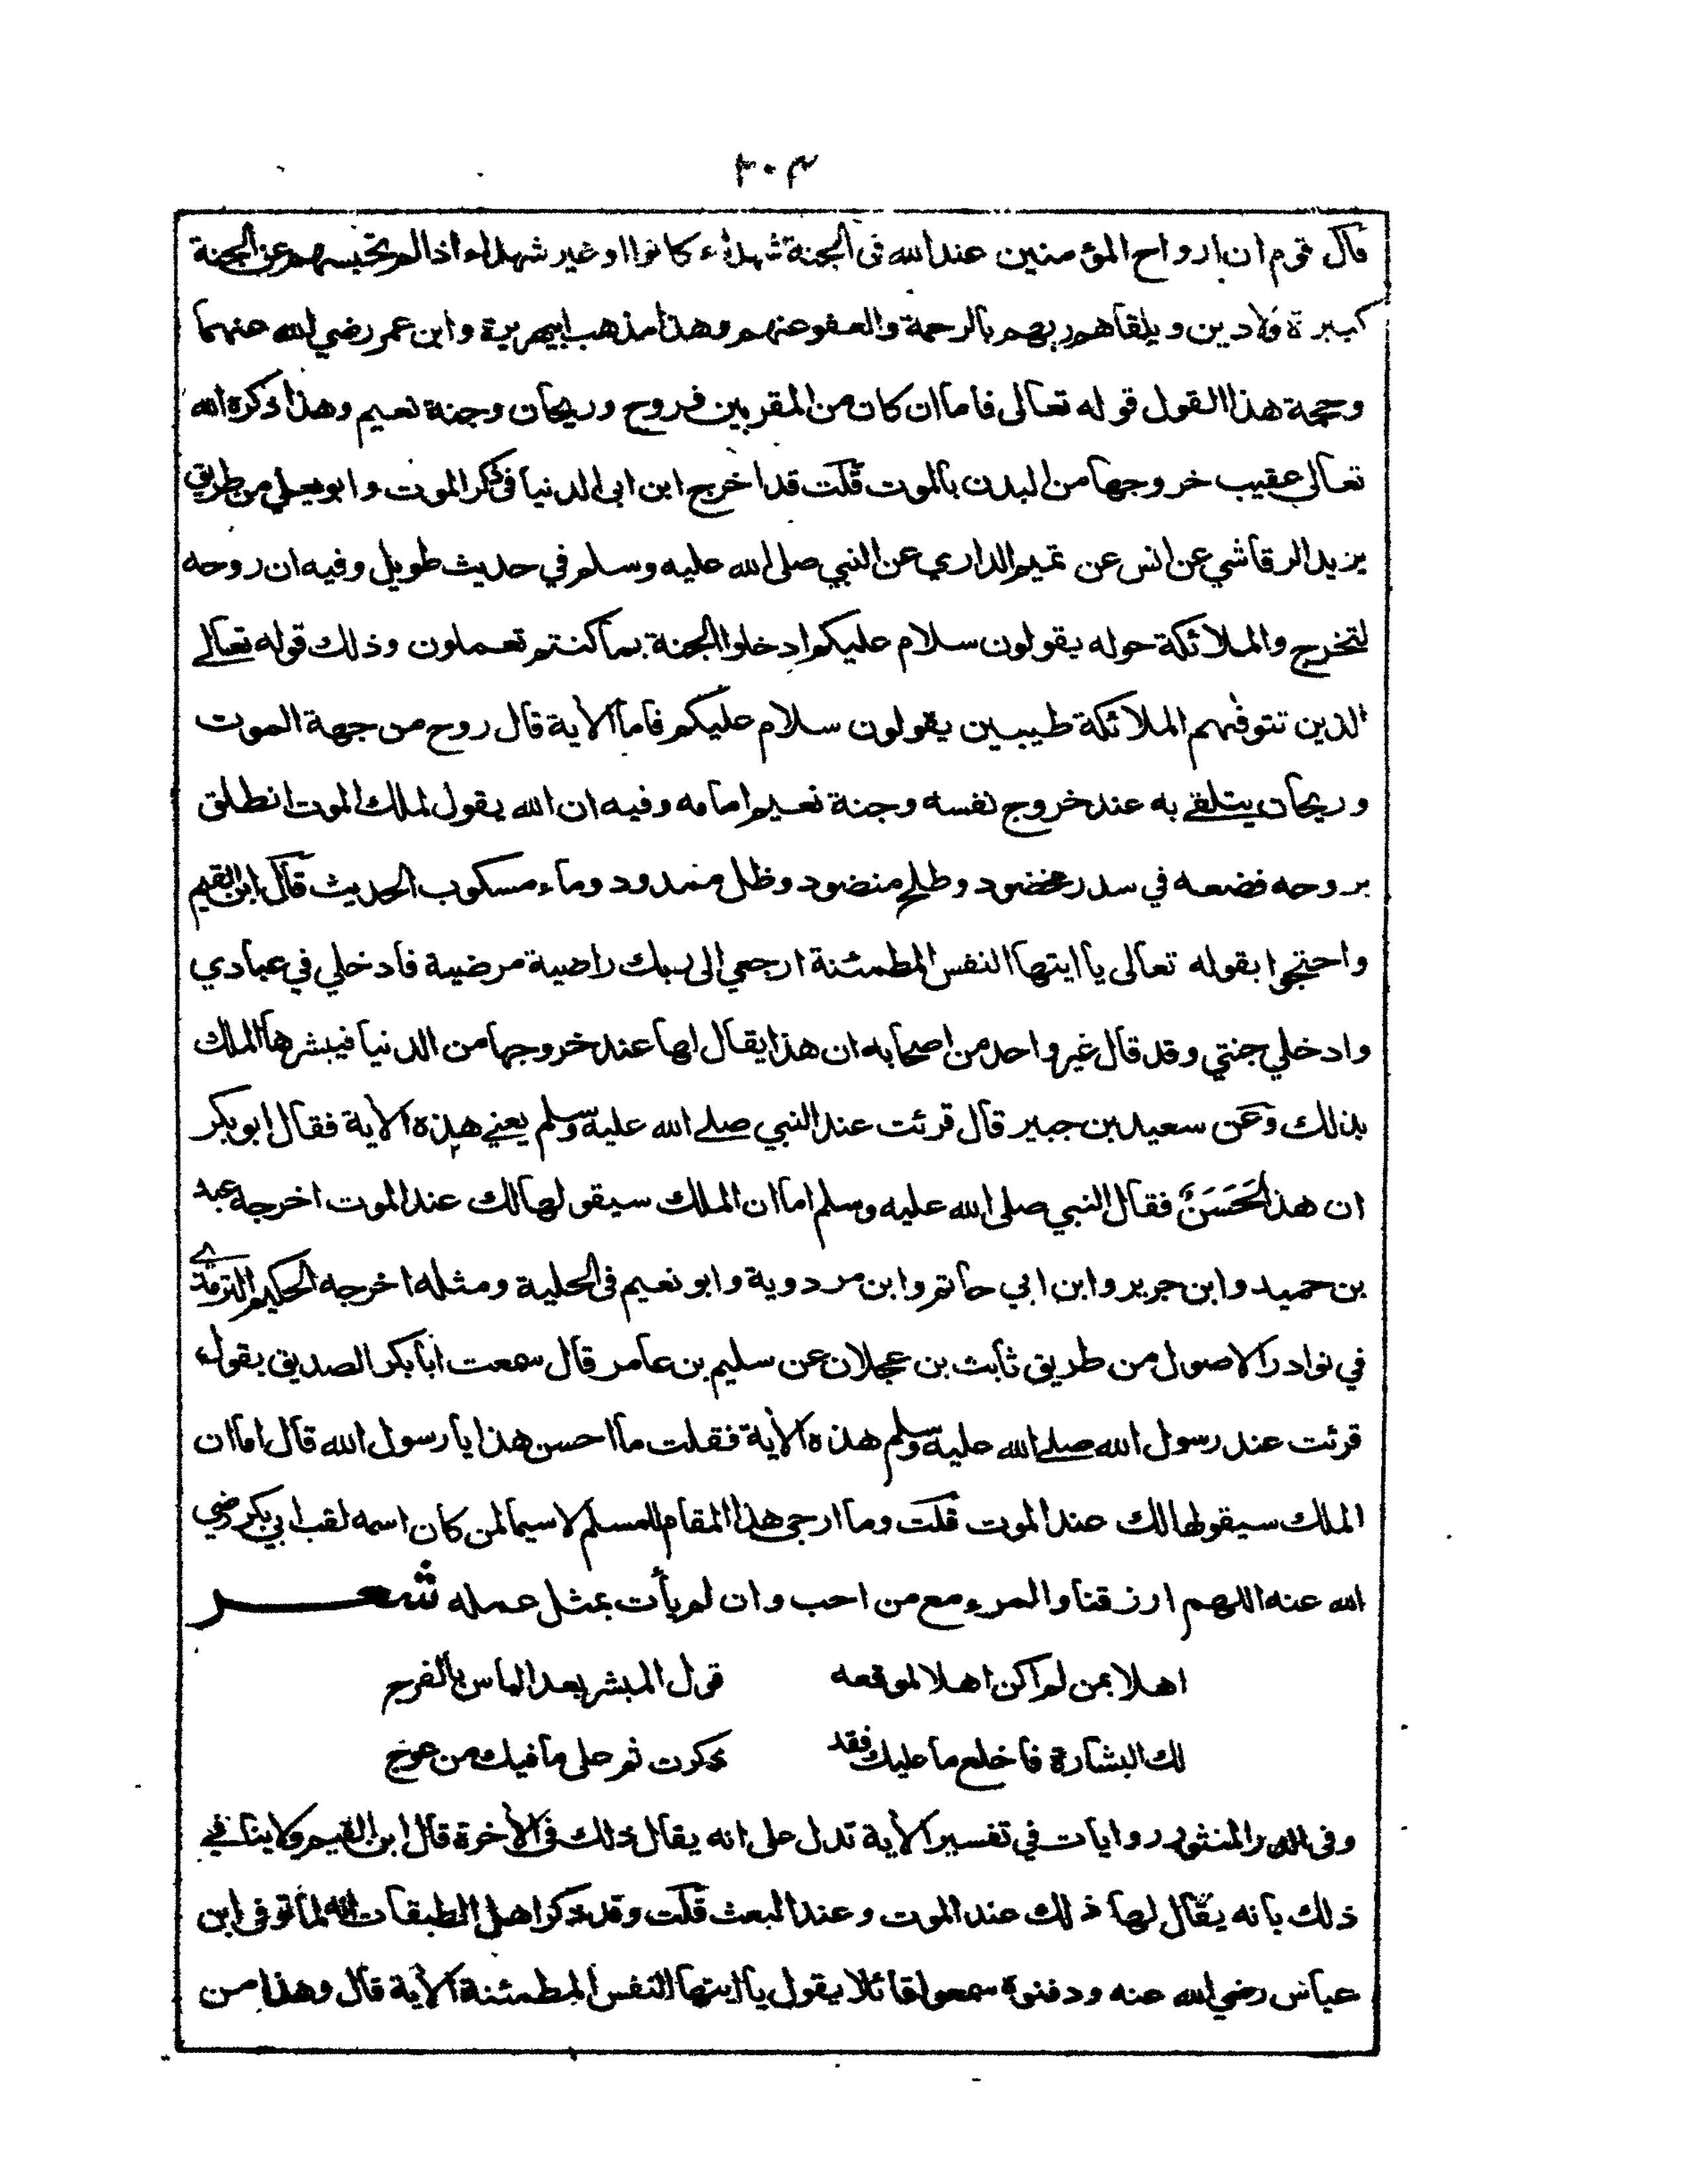 ٣٠٤
قال قوم ان ارواح المؤمنين عند الله فى الجنة شهداء كانوا او غير شهداء اذا لم تحبسهم عن الجنة
كبيرة ولا دين ويلقاهم ربهم بالرحمة والعفو عنهم وهذا مذهب ابي هريرة وابن عمر رضي الله عنهما
وحجة هذا القول قوله تعالى فاما ان كان من المقربين فروح وريحان وجنة نعيم وهذا ذكره الله
تعالى عقيب خروجها من البدن بالموت قلت قد اخرج ابن ابى الدنيا فى ذكر الموت وابو يعلي من طريق
يزيد الرقاشي عن انس عن تميم الداري عن النبي صلى الله عليه وسلم في حديث طويل وفيه ان روحه
لتخرج والملائكة حوله يقولون سلام عليكم ادخلوا الجنة بما كنتم تعملون وذلك قوله تعالے
الذين تتوفهم الملائكة طيبين يقولون سلام عليكم فاما الاية قال روح من جهة الموت
وريحان يتلقے به عند خروج نفسه وجنة نعيم امامه وفيه ان الله يقول لملك الموت انطلق
بروحه فضعه في سدر مخضود وطلح منضود وظل ممدود وماء مسكوب الحديث قال ابن القيم
واحتجوا بقوله تعالى يا ايتها النفس المطمئنة ارجعي الى ربك راضية مرضية فادخلي في عبادي
وادخلي جنتي وقد قال غير واحد من اصحابه ان هذا يقال لها عند خروجها من الدنيا فيبشرها الملك
بذلك وعن سعيد بن جبير قال قرئت عند النبي صلے الله عليه وسلم يعنے هذه الاية فقال ابو بكر
ان هذا لَحَسَنٌ فقال النبي صلى الله عليه وسلم اما ان الملك سيقولها لك عند الموت اخرجه عبد
بن حميد وابن جرير وابن ابي حاتم وابن مردوية وابو نعيم فى الحلية ومثله اخرجه الحكيم الترمذے
في نوادر الاصول من طريق ثابت بن عجلان عن سليم بن عامر قال سمعت ابا بكر الصديق يقول
قرئت عند رسول الله صلے الله عليه وسلم هذه الاية فقلت ما احسن هذا يا رسول الله قال اما ان
الملك سيقولها لك عند الموت قلت وما ارجى هذا المقام للمسلم لاسيما لمن كان اسمه لقب ابي بكر رضي
الله عنه اللهم ارزقنا والمرء مع من احب وان لم يأت بمثل عمله شعر
اهلا بمن لم اكن اهلا لموقعه قول المبشر بعد الياس بالفرج
لك البشارة فاخلع ما عليك فقد ذكرت ثم على ما فيك من عوج
وفى الدر المنثور روايات في تفسير الاية تدل على انه يقال ذلك فى الاخرة قال ابن القيم ولا ينافے
ذلك بانه يقال لها ذلك عند الموت وعند البعث قلت وقد ذكر اهل الطبقات انه لما توفى ابن
عباس رضي الله عنه ودفنوه سمعوا قائلا يقول يا ايتها النفس المطمئنة الاية قال وهذا من